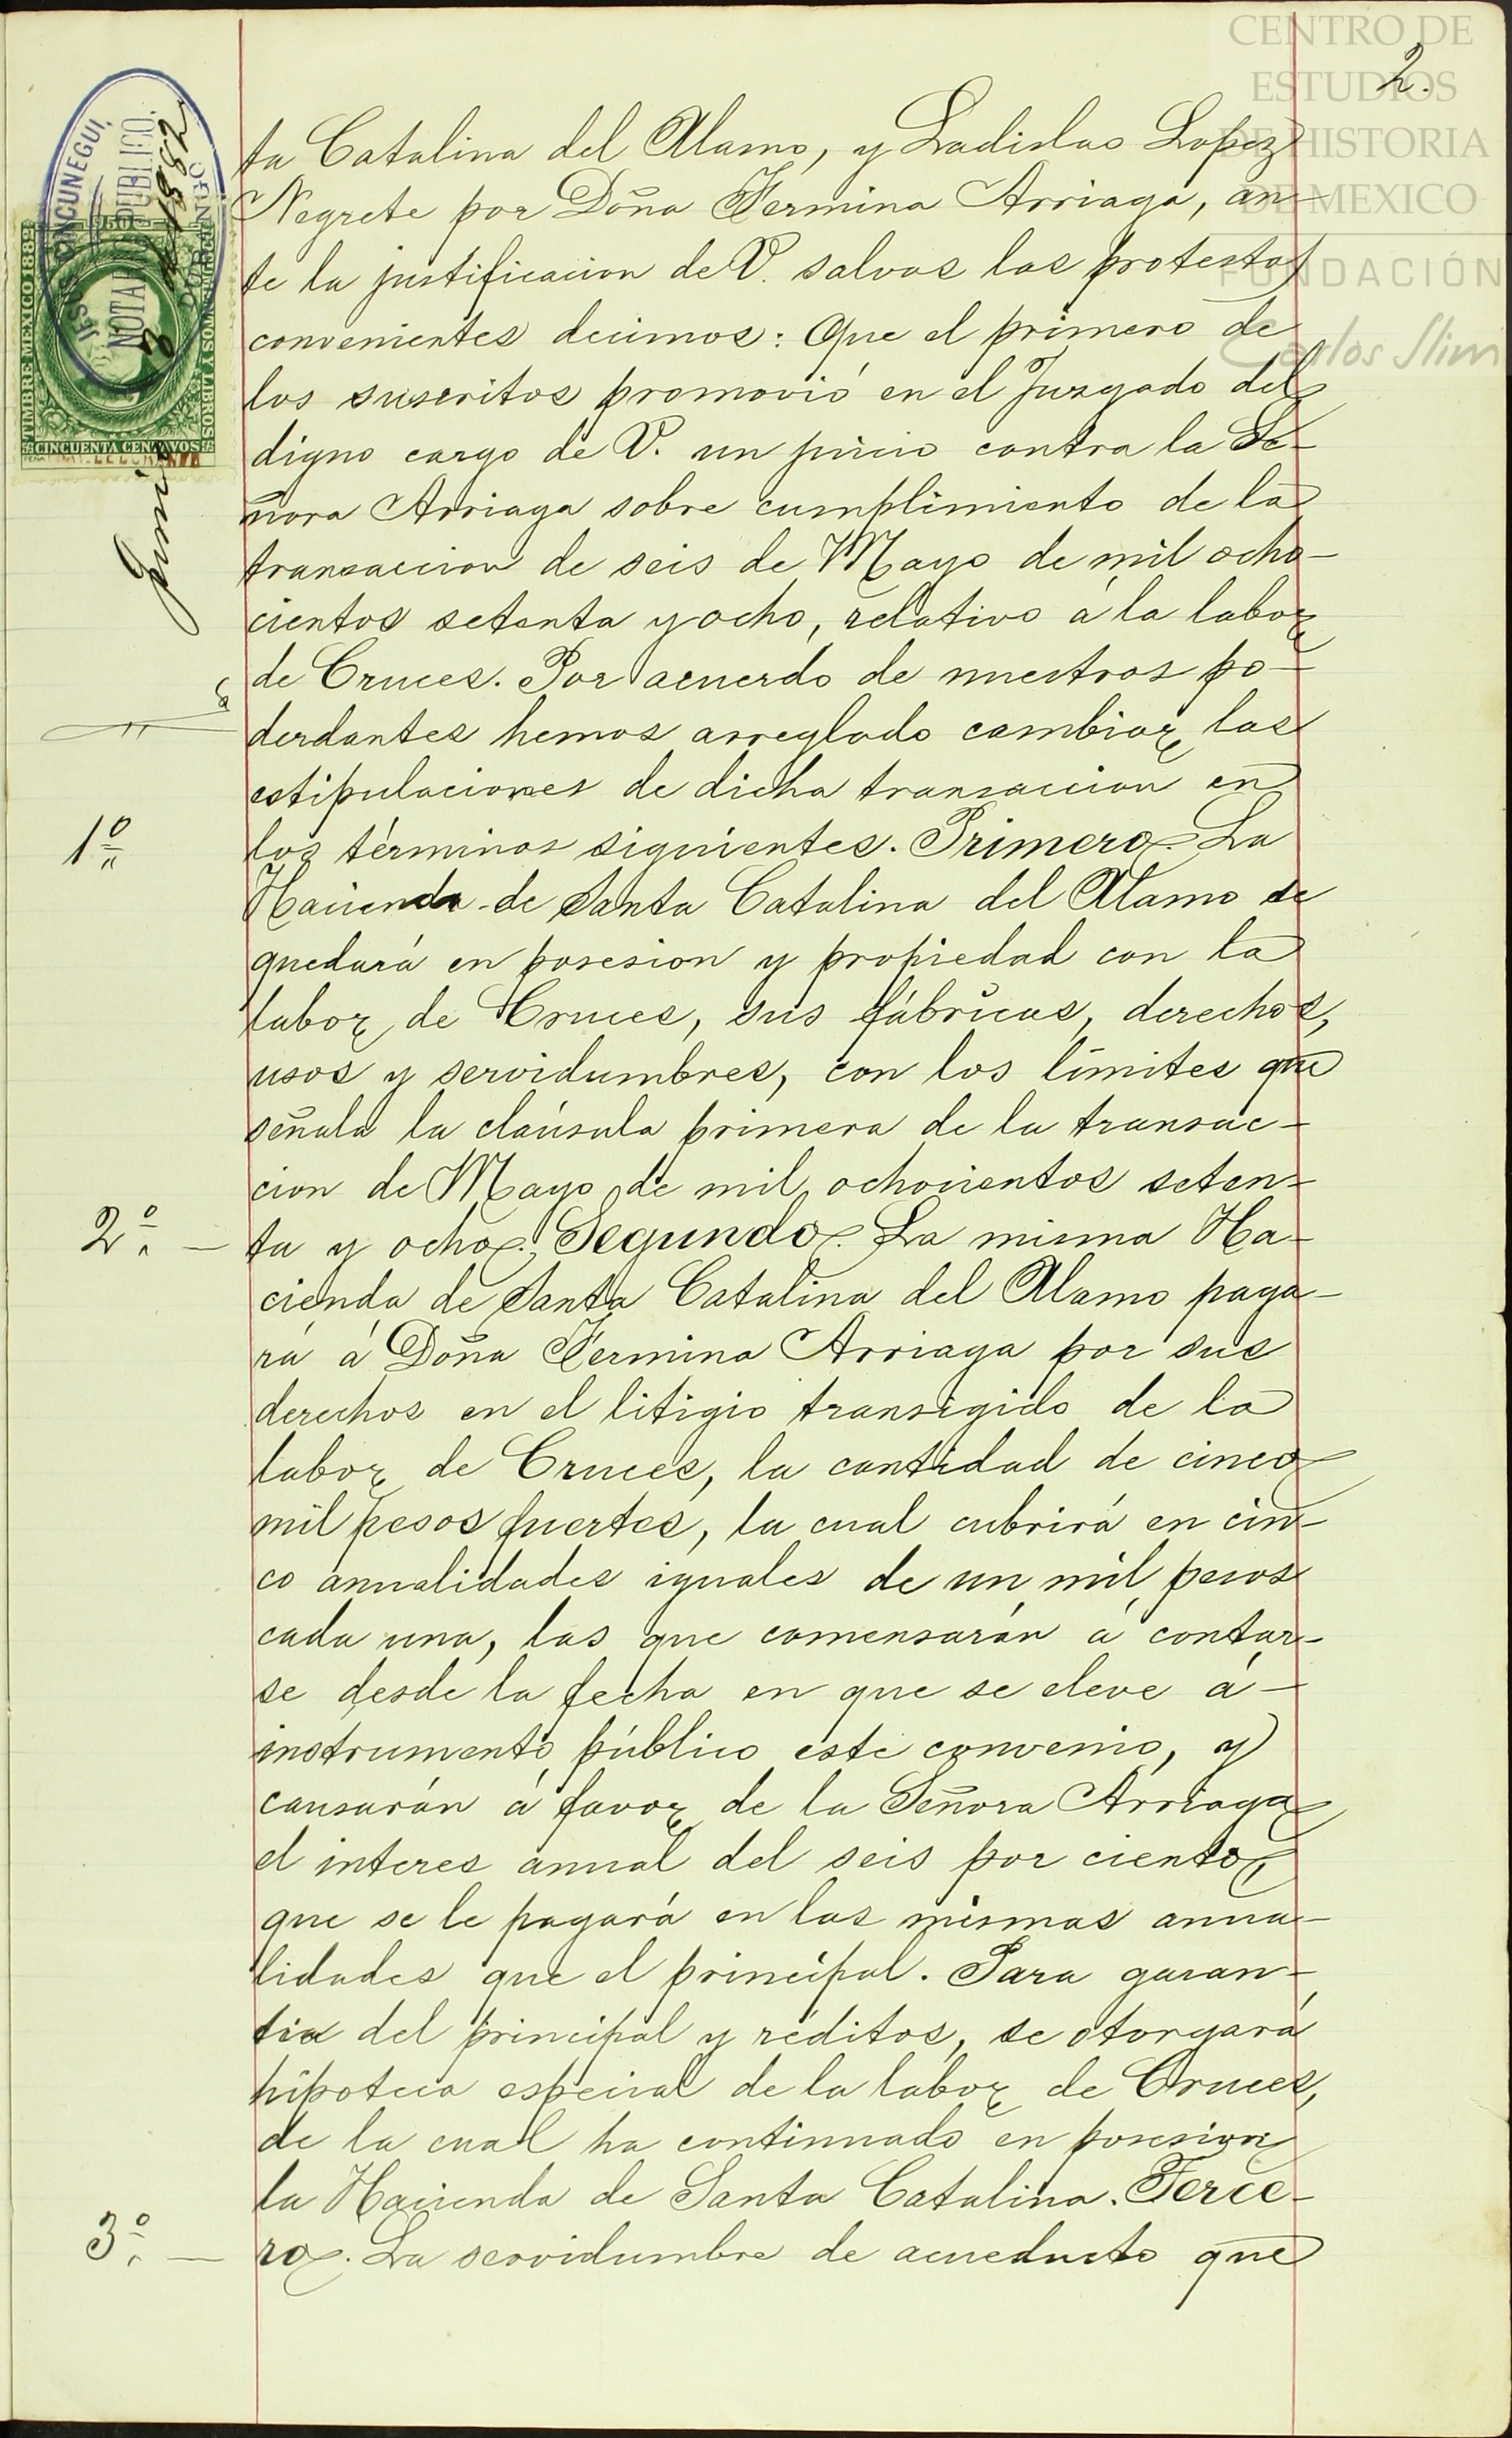 CENTRO DE
ESTUDIOS
DE HISTORIA
DE MEXICO
FUNDACIÓN
Carlos Slim
2.
JESUS CINCUNEGUI,
NOTARIO PUBLICO.
DURANGO
TIMBRE MEXICO 1882
50
DOCUMENTOS Y LIBROS
CINCUENTA CENTAVOS
8 de 1882
Junio
ta Catalina del Alamo, y Ladislao Lopez
Negrete por Doña Fermina Arriaga, an-
te la justificacion de V. salvas las protestas
convenientes decimos: Que el primero de
los suscritos promovió en el Juzgado del
digno cargo de V. un juicio contra la Se-
ñora Arriaga sobre cumplimiento de la
transaccion de seis de Mayo de mil ocho-
cientos setenta y ocho, relativo á la labor
de Cruces. Por acuerdo de nuestros po-
derdantes hemos arreglado cambiar las
estipulaciones de dicha transaccion en
1º los términos siguientes. Primero. La
Hacienda de Santa Catalina del Alamo se
quedará en posesion y propiedad con la
labor de Cruces, sus fábricas, derechos,
usos y servidumbres, con los límites que
señala la cláusula primera de la transac-
cion de Mayo de mil ochocientos seten-
2º. — ta y ocho. Segundo. La misma Ha-
cienda de Santa Catalina del Alamo paga-
rá á Doña Fermina Arriaga por sus
derechos en el litigio transigido de la
labor de Cruces, la cantidad de cinco
mil pesos fuertes, la cual cubrirá en cin-
co anualidades iguales de un mil pesos
cada una, las que comensarán á contar-
se desde la fecha en que se eleve á-
instrumento público este convenio, y
causarán á favor de la Señora Arriaga
el interes anual del seis por ciento,
que se le pagará en las mismas anua-
lidades que el principal. Para garan-
tia del principal y réditos, se otorgará
hipoteca especial de la labor de Cruces,
de la cual ha continuado en posesion
la Hacienda de Santa Catalina. Terce-
3º. — ro. La servidumbre de acueducto que